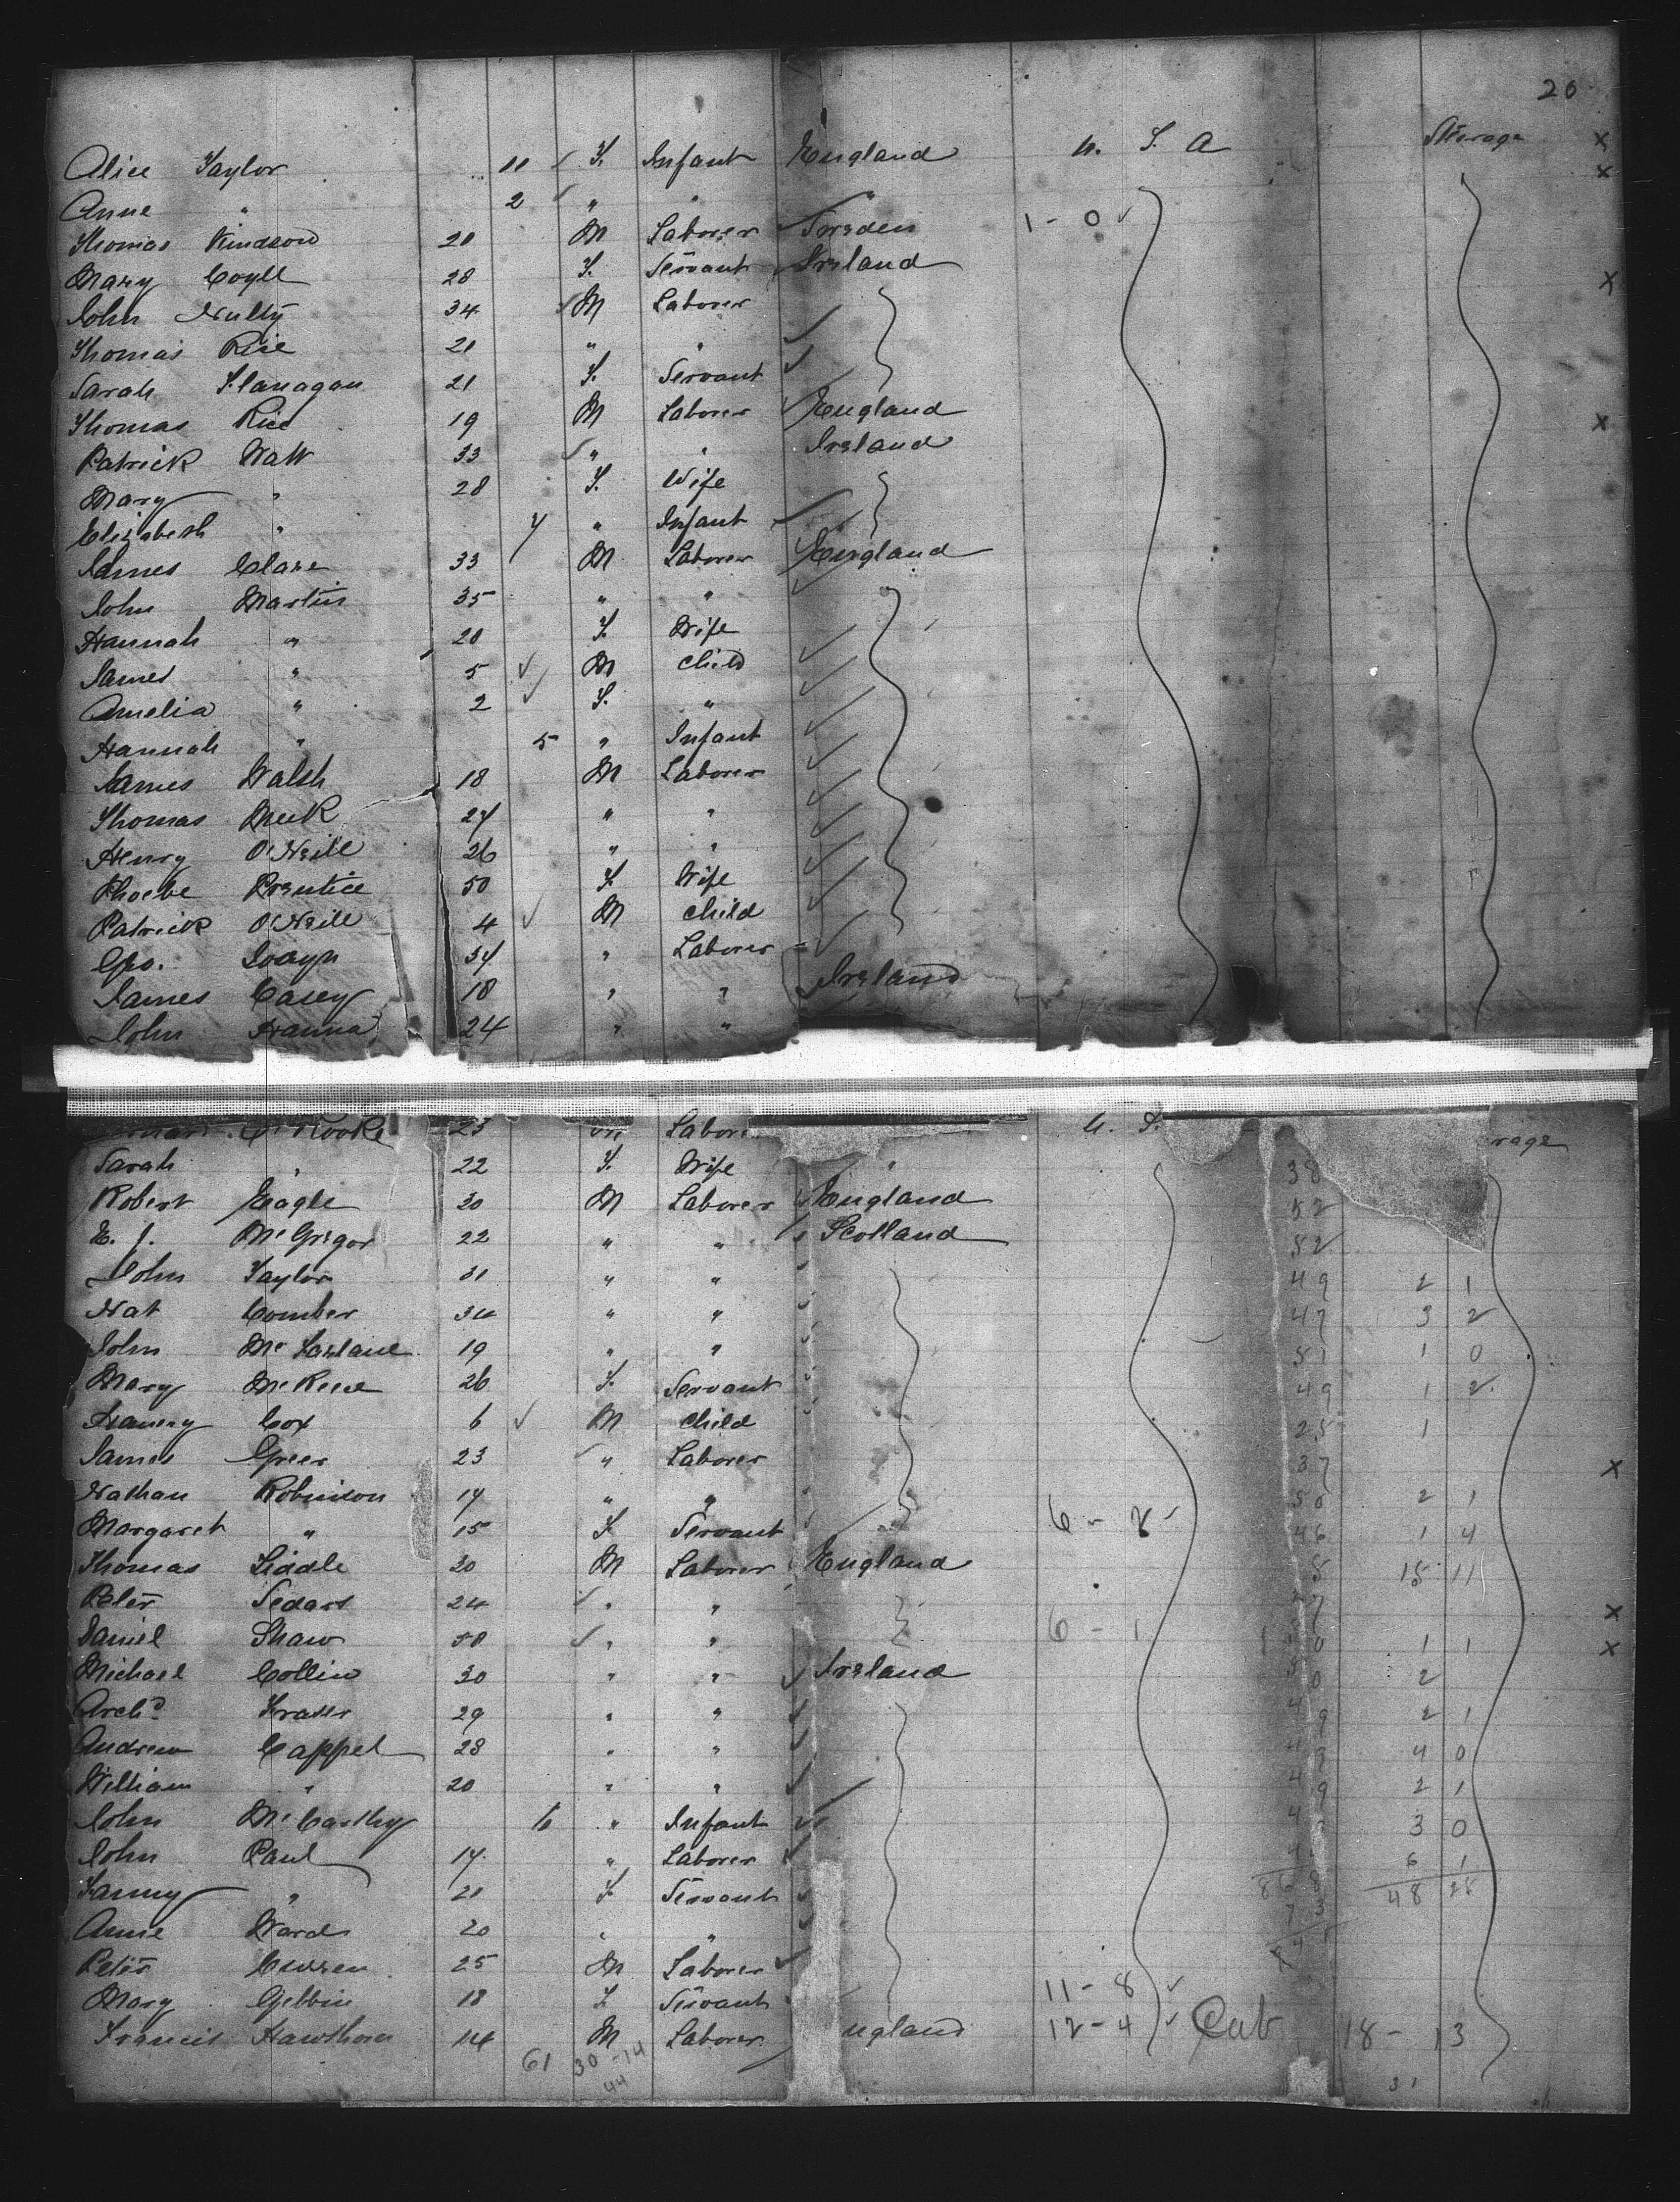 26
Alice Taylor 11 ✓ F. Infant England U. S. A Steerage x
Anne " 2 ✓ " " " x
Thomas 20 M Laborer ✓ Sweden 1 - 0 ✓
Mary Coyle 28 F. Servant ✓ Ireland x
John Nulty 34 ✓ M Laborer
Thomas Rice 21 " " ✓
Sarah Flanagan 21 F. Servant ✓
Thomas Rice 19 M Laborer ✓ England x
Patrick Watt 33 ✓ " " Ireland
Mary " 28 F. Wife
Elizabeth " 7 " Infant ✓
James Clare 33 M Laborer ✓ England
John Martin 35 " " ✓
Hannah " 20 F. Wife ✓
James " 5 ✓ M Child ✓
Amelia " 2 ✓ F. " ✓
Hannah " 5 " Infant ✓
James Walsh 18 M Laborer ✓
Thomas Meek 27 " " ✓
Henry O'Neill 26 " " ✓
Phoebe Prentice 50 F. Wife ✓
Patrick O'Neill 4 ✓ M Child ✓
Geo. 34 " Laborer ✓
James Casey 18 " " Ireland
John Hanna 24 " "
O'Rooke 23 M Labor U. S. rage
Sarah " 22 F. Wife " 38
Robert Eagle 30 M Laborer ✓ England 52
E. J. McGregor 22 " " ✓ Scotland 52
John Taylor 31 " " ✓ 49 2 1
Nat Comber 34 " " ✓ 47 3 2
John McFarlane 19 " " ✓ 51 1 0
Mary McKeese 26 F. Servant ✓ 49 1 2
Harvey Cox 6 ✓ M Child ✓ 25 1
James Greer 23 ✓ " Laborer ✓ 37 x
Nathan Robinson 17 " " ✓ 50 2 1
Margaret " 15 F. Servant ✓ 6 - 2 46 1 4
Thomas Liddle 20 M Laborer England 5 15 11
Peter Sedars 24 ✓ " " 7 x
Daniel Shaw 50 ✓ " " 6 - 1 0 1 1 x
Michael Collin 30 " " ✓ Ireland 0 2
Archd. Fraser 29 " " ✓ 49 2 1
Andrew Cappel 28 " " ✓ 4 0
William " 20 " " ✓ 49 2 1
John McCarthy 6 " Infant ✓ 3 0
John Paul 17 " Laborer ✓ 6 1
Fanny " 21 F. Servant ✓ 48 28
Anne Ward 20 " " ✓
Peter Curren 25 M Laborer ✓
Mary Gibbin 18 F. Servant 11 - 8 ✓
Francis Hawthorn 14 M Laborer ngland 12 - 4 ✓ 18 - 13
61 30 - 14
44 31